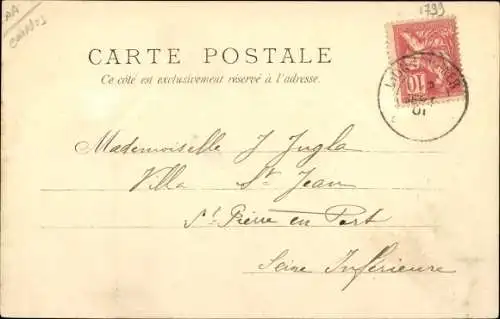 1799
CARTE POSTALE
Ce côté est exclusivement réservé à l'adresse.
10
01
Mademoiselle J Jugla
Villa St Jean
St Pierre en Port
Seine Inférieure